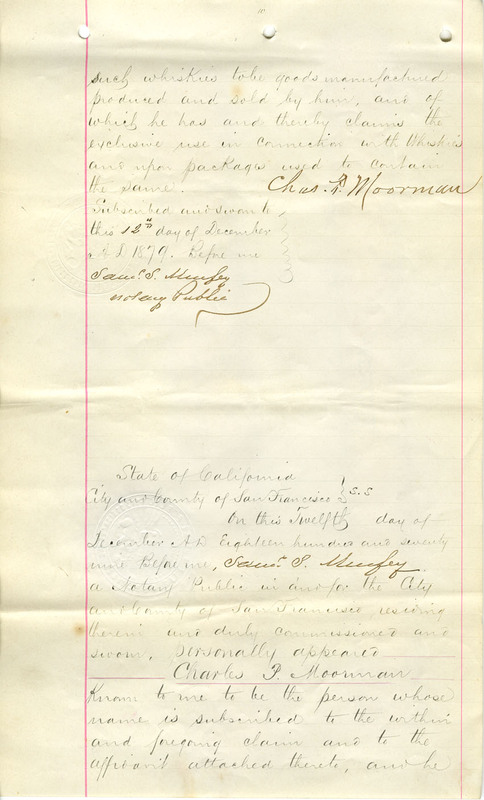 such whiskies to be goods manufactured
produced and sold by him, and of
which he has and thereby claims the
exclusive use in connection with Whiskies
and upon packages used to contain
the same.
Chas. P. Moorman
Subscribed and sworn to
this 12th day of December
A.D. 1879. Before me
Saml. S.
Notary Public
State of California
City and County of San Francisco } S.S
On this Twelfth day of
December A.D. Eighteen hundred and seventy
nine Before me, Saml. S.
a Notary Public in and for the City
and County of San Francisco, residing
therein and duly commissioned and
sworn, personally appeared
Charles P. Moorman
Known to me to be the person whose
name is subscribed to the within
and foregoing claim and to the
affidavit attached thereto, and he